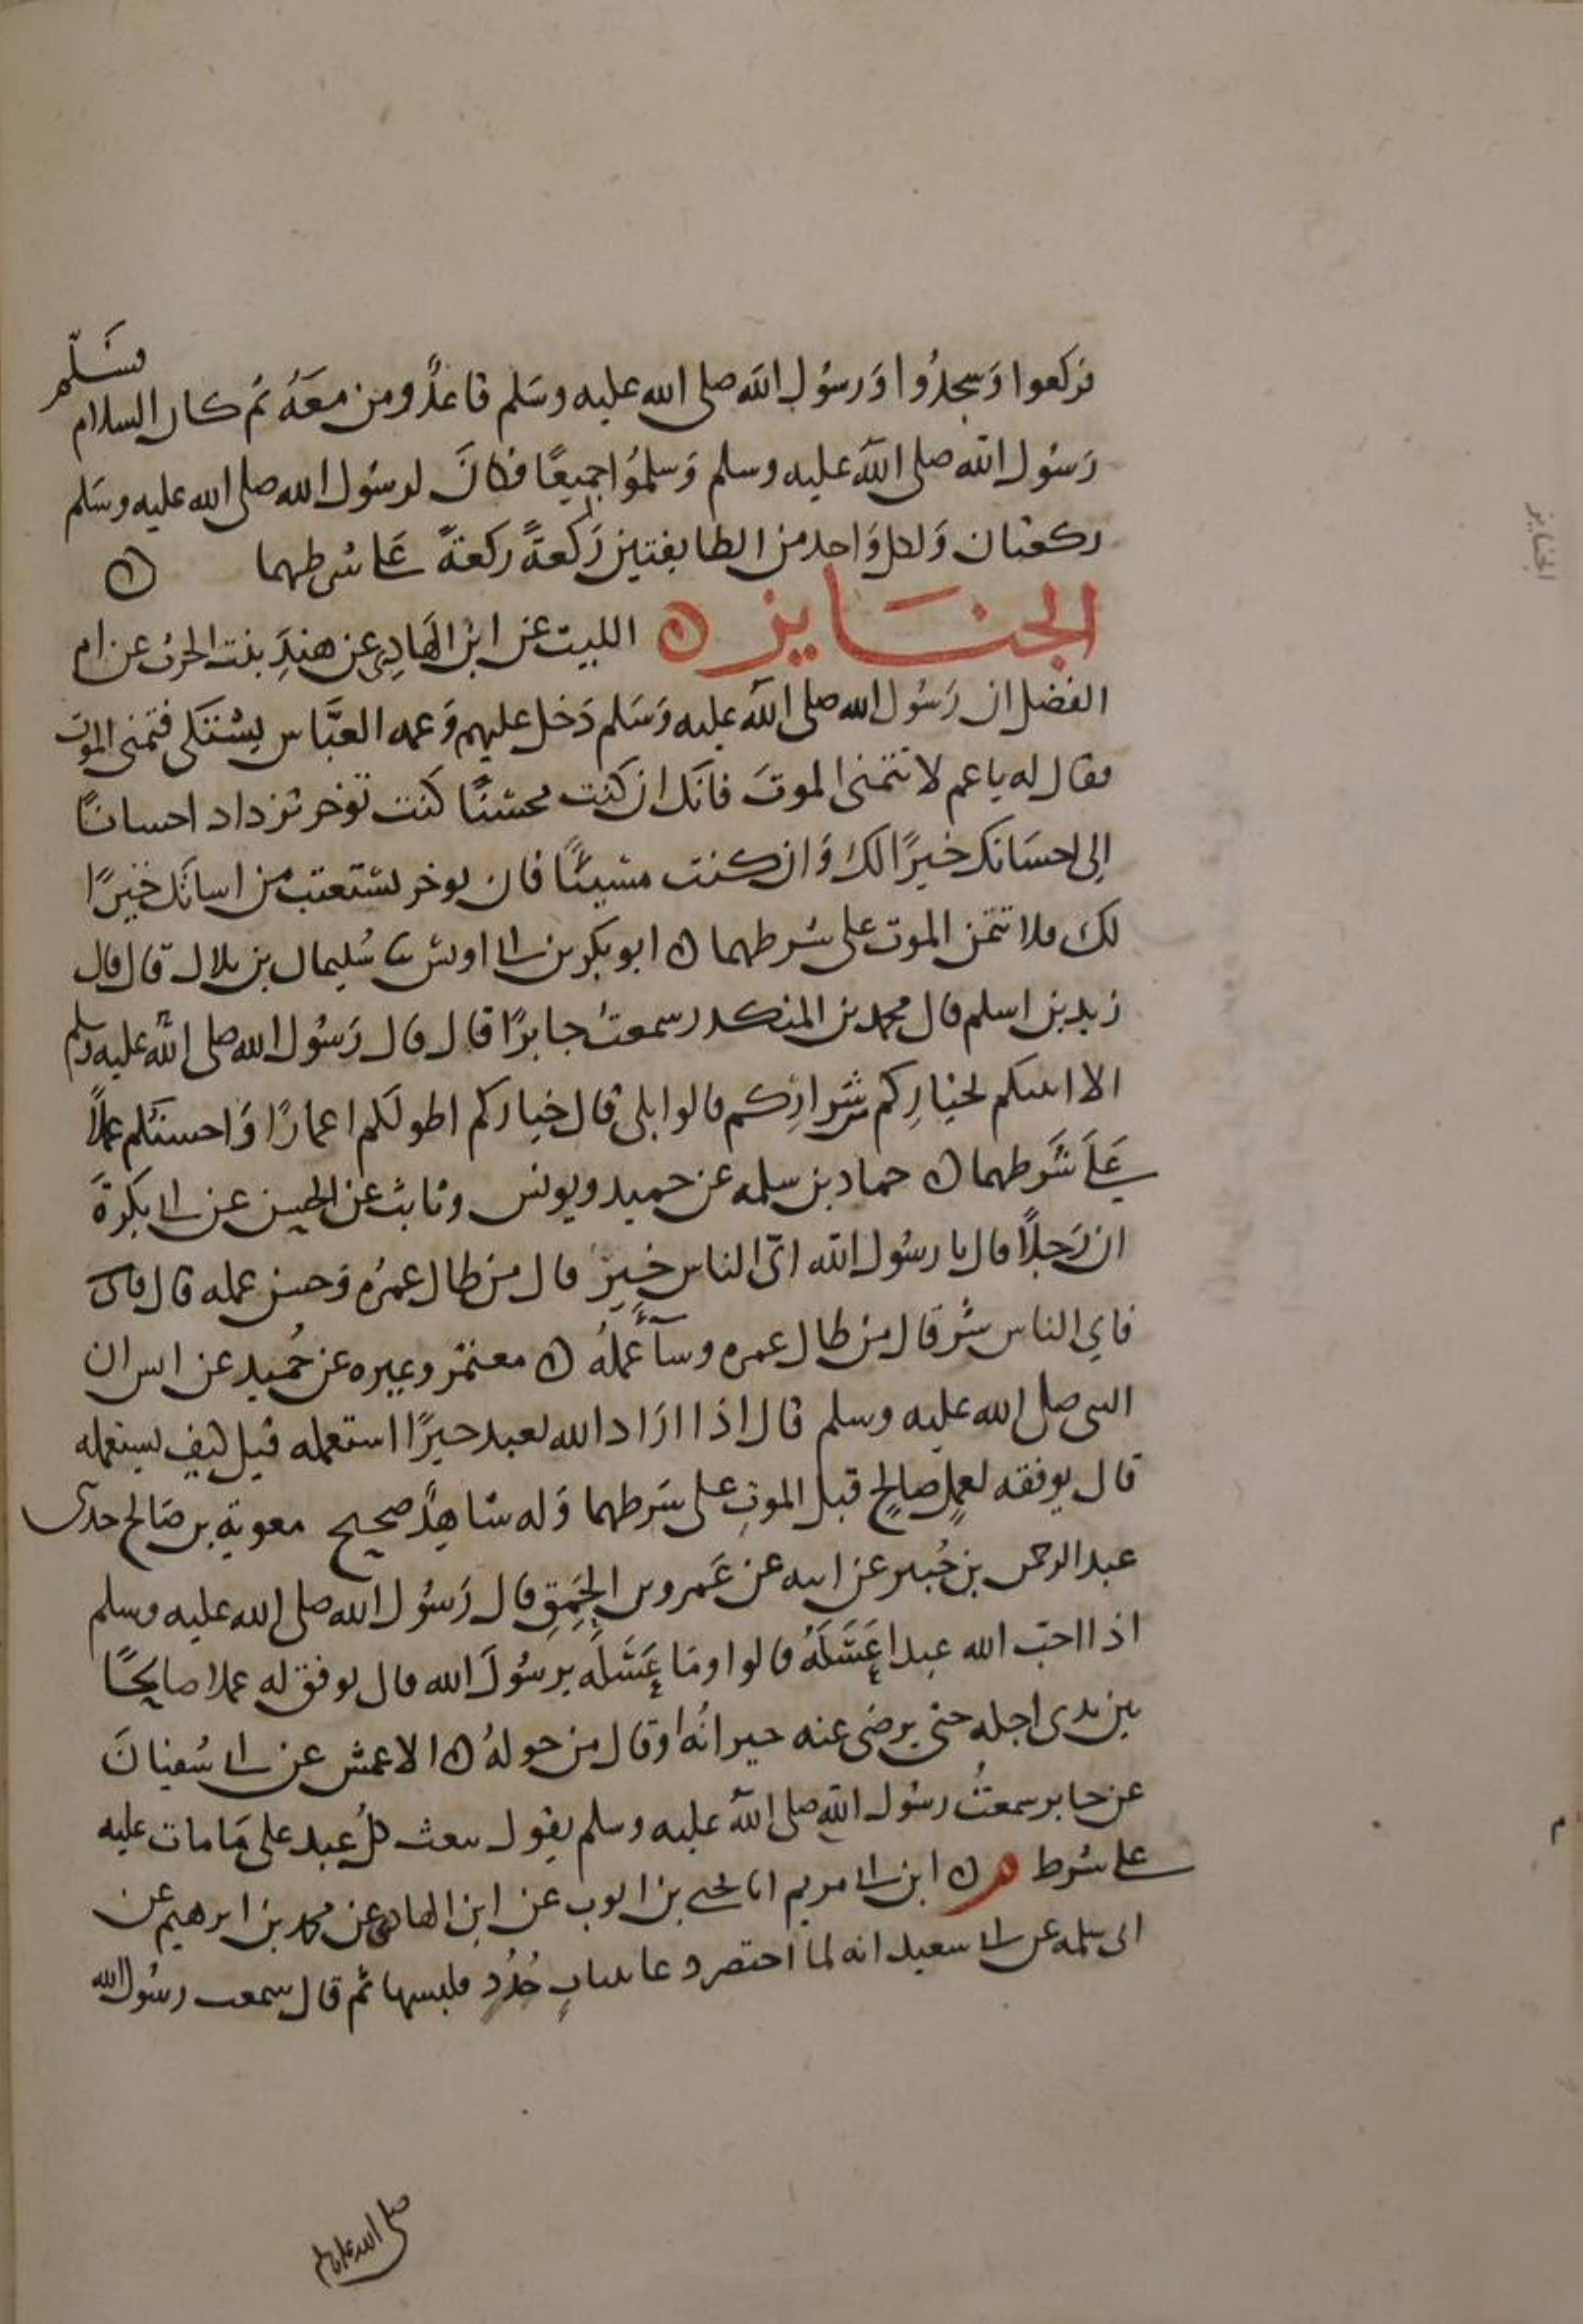 فركعوا وَسجدُوا وَرسُول الله صلى الله عليه وسَلم قاعدٌ ومن معَهُ ثم كان السلام فسَلّم
رَسُول الله صلى الله عليه وسلم وَسلمُوا جميعًا فكانَ لرسُول الله صلى الله عليه وسَلم
ركعتان وَلكل وَاحد من الطايفتين رَكعةً ركعةً عَلى شرطهما ه
الجنَايز ه الليث عن ابن الهَادِي عن هندَ بنت الحرث عن ام
الفضل ان رَسُول الله صلى الله عليه وَسَلم دَخل عليهم وَعمه العبَّاس يشتكى فتمنى الموت
فقال له يا عم لا تتمنى الموتَ فانك ان كنت محسنًا كنت توخر تزداد احسانًا
إلى احسَانك خيرًا لك وَان كنت مسيئًا فان توخر تستعتب من اسائك خيرًا
لك فلا تتمن الموت على شرطهما ه ابو بكر بن ابى اويس ثنا سُليمان بن بلال قال قال
زيد بن اسلم قال محمد بن المنكدر سمعتُ جابرًا قال قال رَسُول الله صلى الله عليه وسلم
الا انبئكم بخيارِكم من شرارِكم قالوا بلى قال خياركم اطولكم اعمارًا وَاحسنكم عملًا
عَلى شَرطهما ه حماد بن سلمه عن حميد ويونس وثابت عن الحسن عن ابى بكرةَ
ان رَجلًا قال يا رسُول الله اىّ الناس خيرٌ قال من طال عمرُه وَحسن عمله قال قال
فاي الناس شر قال من طال عمره وسآءَ عملُه ه معتمر وغيره عن حُميد عن انس ان
النبى صلى الله عليه وسلم قال اذا ارَاد الله بعبد خيرًا استعمله قيل كيف يستعمله
قال يوفقه لعملٍ صالحٍ قبل الموتِ على شرطهما وَله شاهدٌ صحيح معوية بن صَالح حدثنى
عبد الرحمن بن جُبير عن ابيه عن عَمرو بن الحَمِقِ قال رَسُول الله صلى الله عليه وسلم
اذا احبّ الله عبدا عَسَلَهُ قالوا ومَا عَسَلَه يرسُولَ الله قال يوفق له عملا صالحًا
بين يدى اجله حتى يرضى عنه جيرانُه او قال من حولهُ ه الاعمش عن ابى سُفيانَ
عن جابر سمعتُ رسُول الله صلى الله عليه وسلم يقول يبعث كلُ عبد على مَا مات عليه
على شرط م ه ابن ابى مريم انا يحيى بن ايوب عن ابن الهادى عن محمد بن ابرهيم عن
ابى سلمه عن ابى سعيد انه لما احتضر دعا بثيابٍ جُدُدٍ فلبسها ثم قال سمعت رسُول الله
صلى الله عليه وسلم
الجنايز